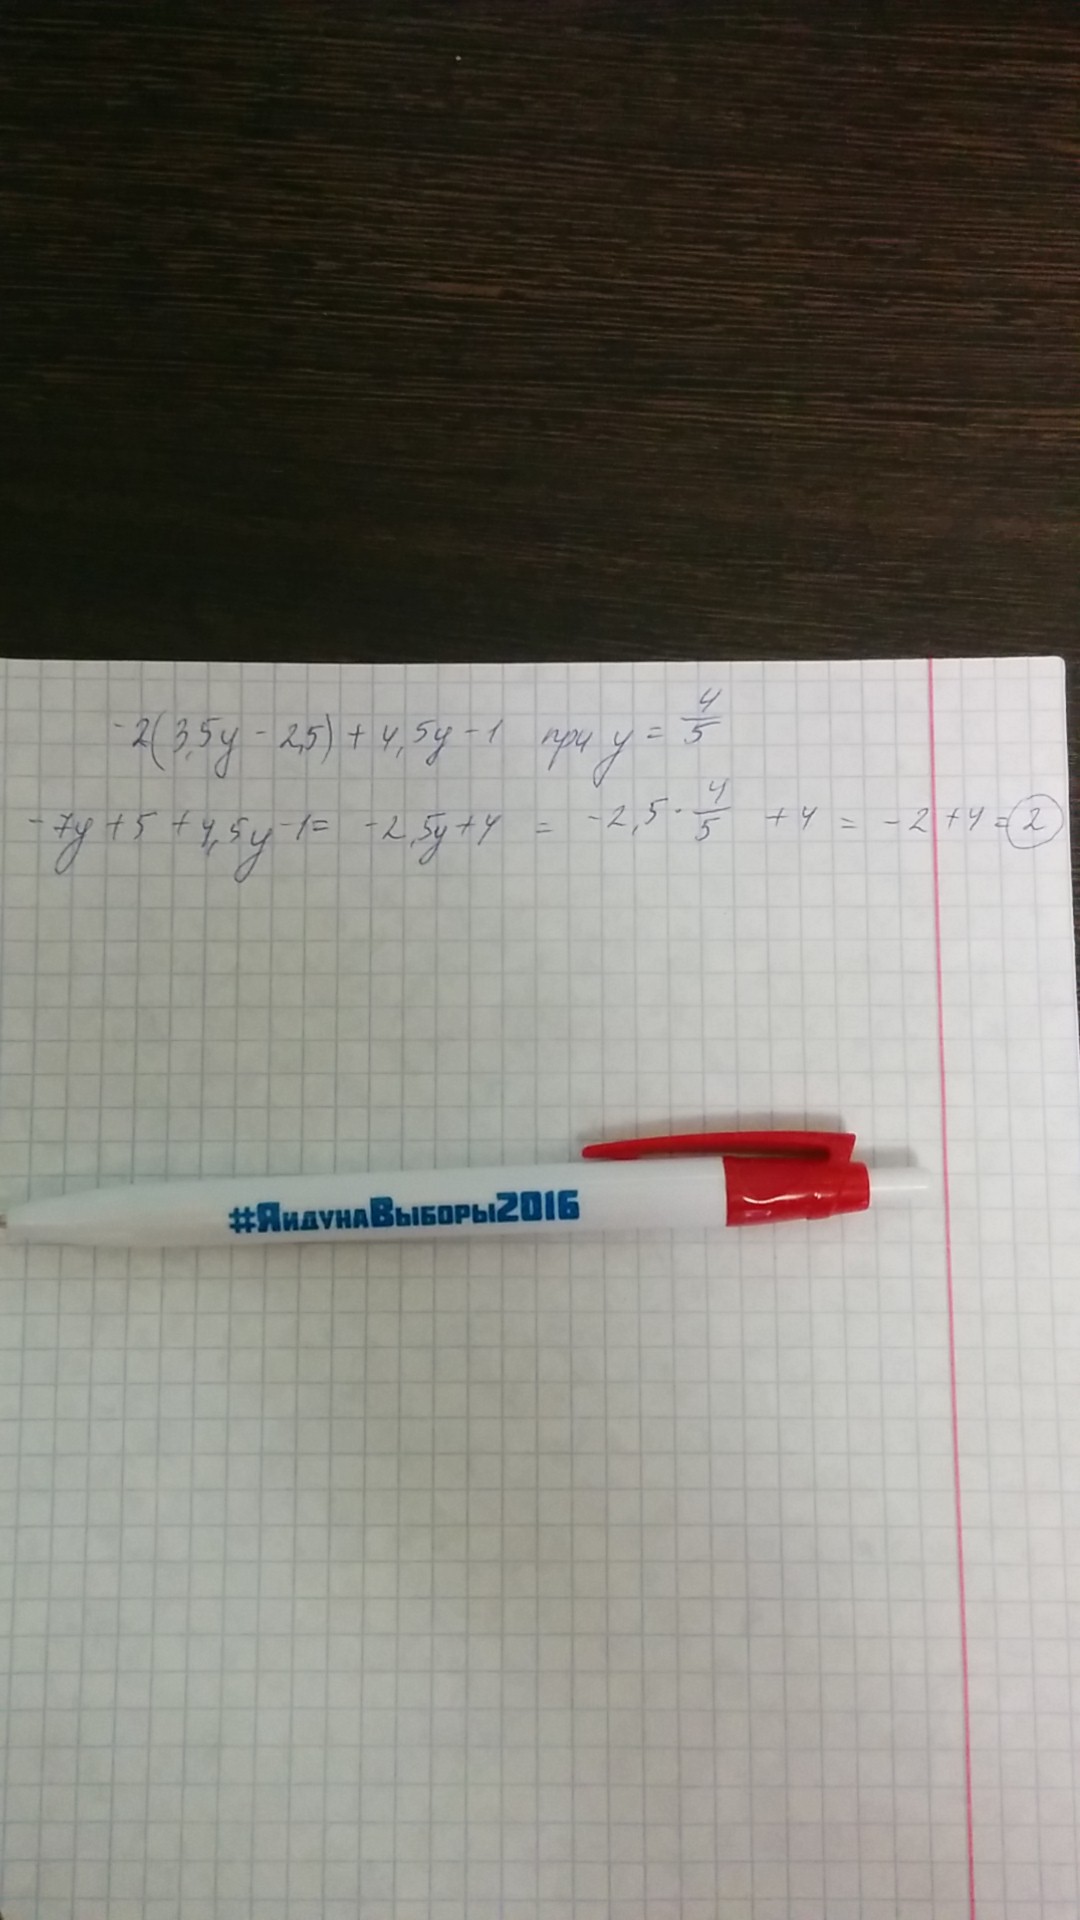 -2(3,5y - 2,5) + 4,5y - 1 при y = 4/5
-7y + 5 + 4,5y - 1 = -2,5y + 4 = -2,5 · 4/5 + 4 = -2 + 4 = 2
#ЯИДУНАВЫБОРЫ2016